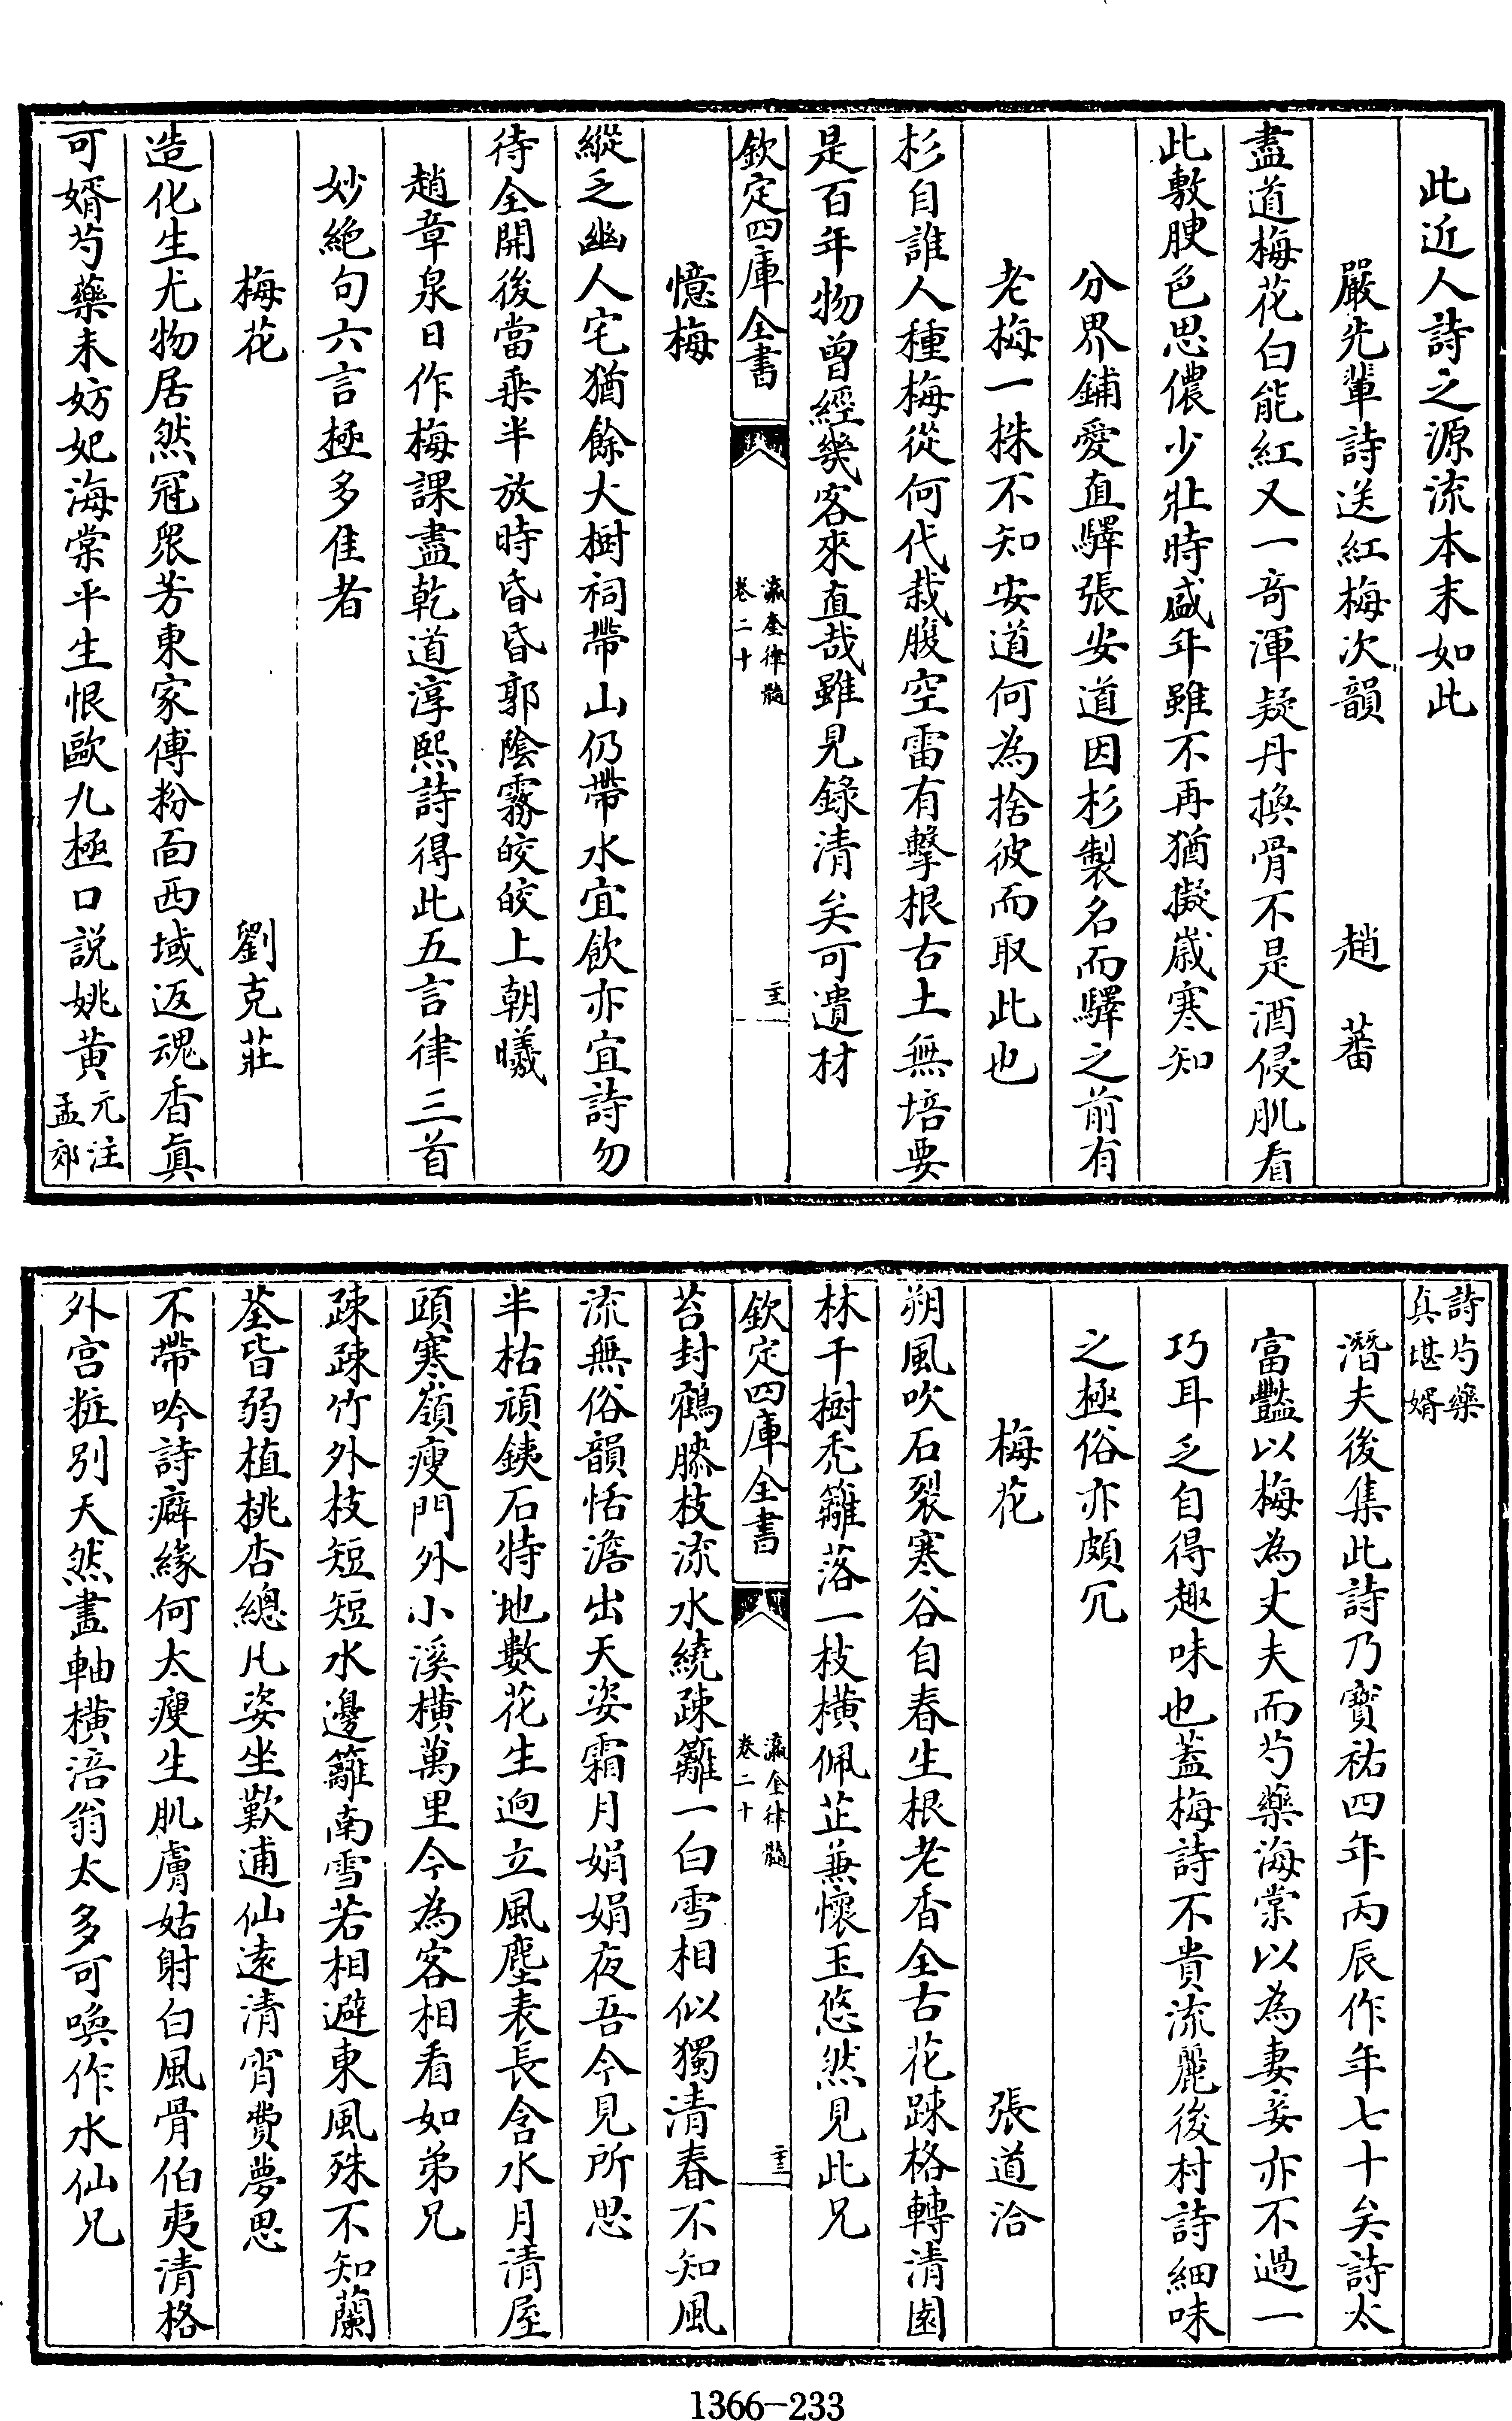 此近人詩之源流本末如此
嚴先輩詩送紅梅次韻　趙蕃
盡道梅花白能紅又一奇渾疑丹換骨不是酒侵肌看
此敷腴色思儂少壯時盛年雖不再猶擬歲寒知
分界鋪愛直驛張安道因杉製名而驛之前有
老梅一株不知安道何為捨彼而取此也
杉自誰人種梅從何代栽腹空雷有擊根古土無培要
是百年物曾經幾客來直哉雖見錄清矣可遺材
欽定四庫全書　瀛奎律髓卷二十　主
憶梅
縱乏幽人宅猶餘大樹祠帶山仍帶水宜飲亦宜詩勿
待全開後當乘半放時昏昏郭陰霧皎皎上朝曦
趙章泉日作梅課盡乾道淳熙詩得此五言律三首
妙絶句六言極多佳者
梅花　劉克莊
造化生尤物居然冠衆芳東家傅粉面西域返魂香真
可婿芍藥未妨妃海棠平生恨歐九極口說姚黃元注孟郊
詩芍藥真堪婿
潛夫後集此詩乃寶祐四年丙辰作年七十矣詩太
富豔以梅為丈夫而芍藥海棠以為妻妾亦不過一
巧耳乏自得趣味也蓋梅詩不貴流麗後村詩細味
之極俗亦頗冗
梅花　張道洽
朔風吹石裂寒谷自春生根老香全古花疎格轉清園
林千樹禿籬落一枝橫佩芷兼懷玉悠然見此兄
欽定四庫全書　瀛奎律髓卷二十　主
苔封鶴膝枝流水繞疎籬一白雪相似獨清春不知風
流無俗韻恬澹出天姿霜月娟娟夜吾今見所思
半枯頑鐵石特地數花生逈立風塵表長含水月清屋
頭寒嶺瘦門外小溪橫萬里今為客相看如弟兄
疎疎竹外枝短短水邊籬南雪若相避東風殊不知蘭
荃皆弱植桃杏總凡姿坐歎逋仙遠清宵費夢思
不帶吟詩癖緣何太瘦生肌膚姑射白風骨伯夷清格
外宮粧別天然畫軸橫涪翁太多可喚作水仙兄
1366—233